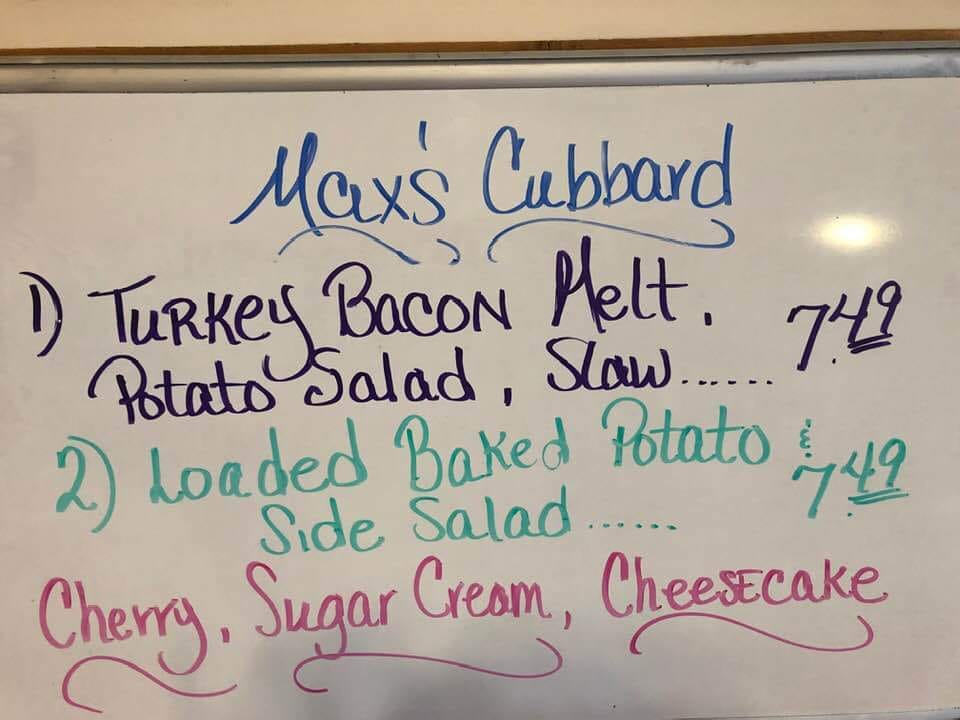 Max's Cubbard
1) Turkey Bacon Melt, 7.49
Potato Salad, Slaw......
2) Loaded Baked Potato & 7.49
Side Salad......
Cherry, Sugar Cream, Cheesecake